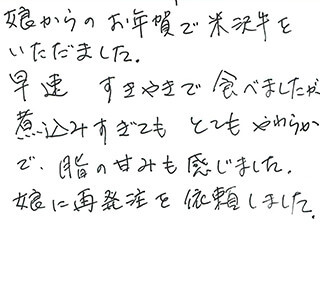 娘からのお年賀で米沢牛を
いただました.
早速 すきやきで食べましたが
煮込みすぎても とても やわらか
で、脂の甘みも感じました.
娘に再発注を依頼しました.